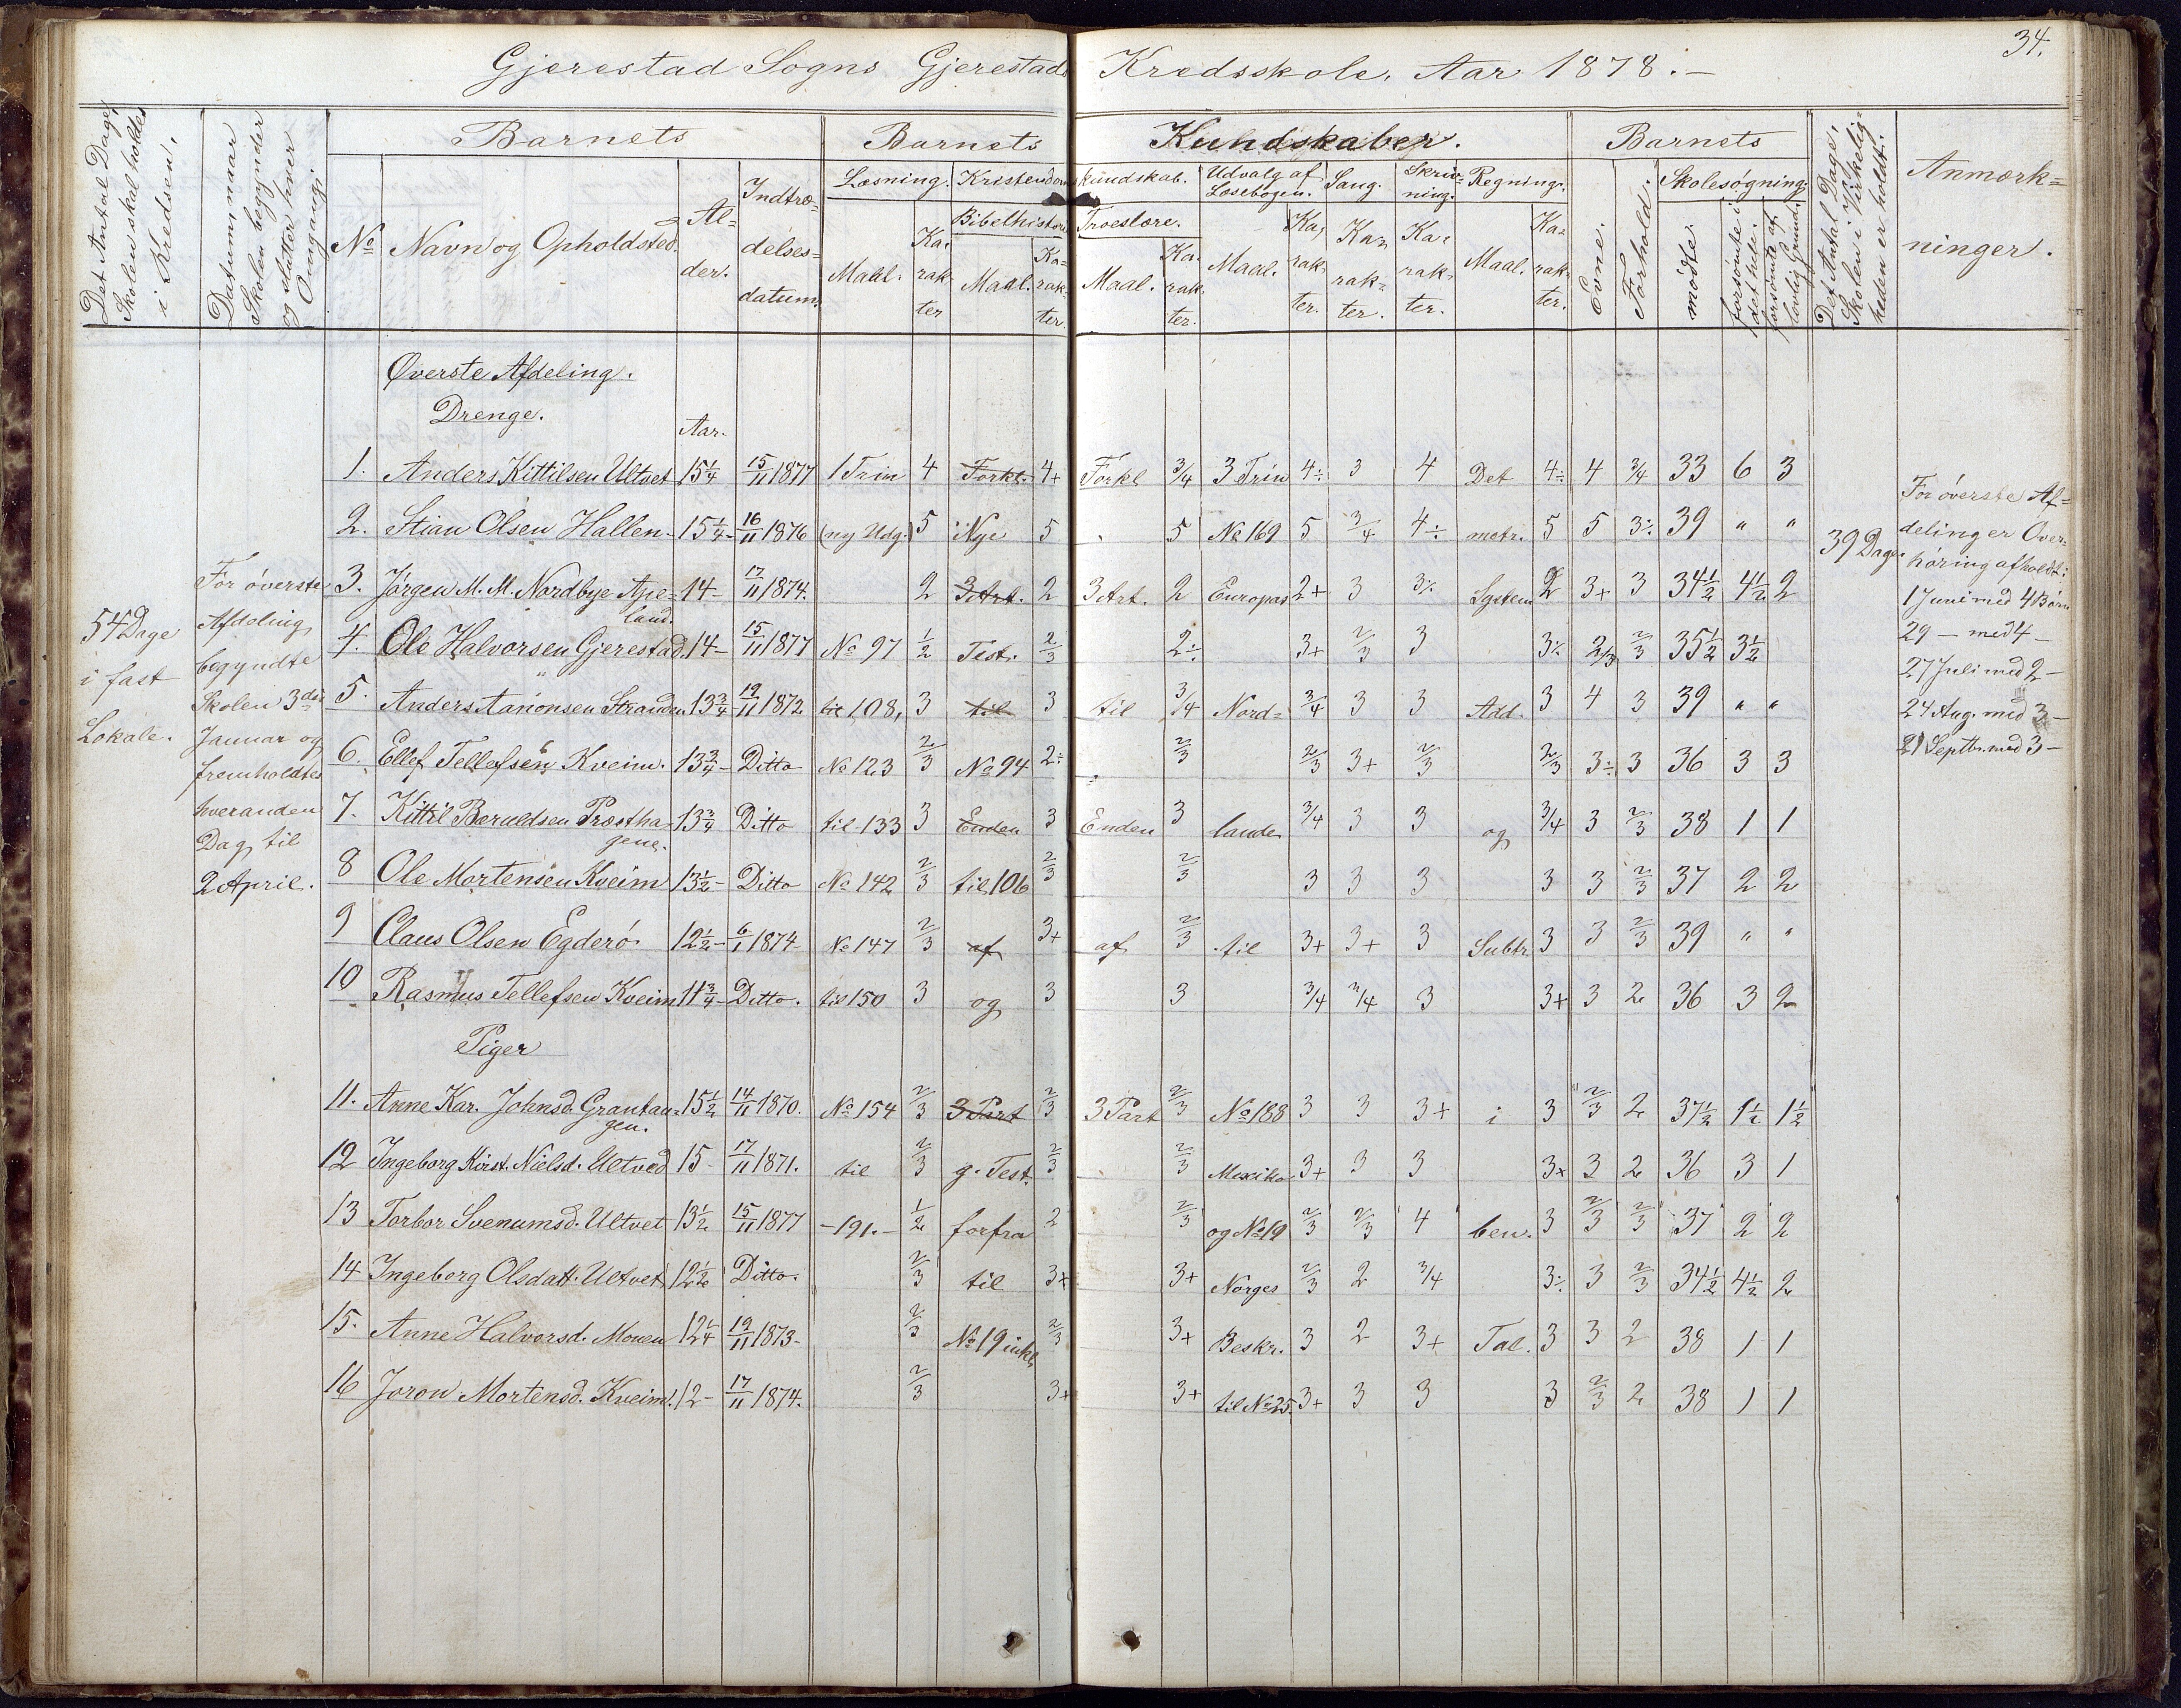 34.
Gjerestad Sogns Gjerestads Kredsskole, Aar 1878.-
Det Antal Dage, Skolen skal holdes i Kredsen.
Datum naar Skolen begynder og slutter hver Omgang.
Barnets
Barnets Kundskaber.
Barnets
Det Antal Dage, Skolen i Virkeligheden er holdt.
Anmærkninger.
No Navn og Opholdsted. Alder. Indtrædelsesdatum.
Læsning. Kristendomskundskab. Udvalg af Læsebogen. Sang. Skrivning. Regning.
Bibelhistorie Troeslære.
Maal. Karakter Maal. Karakter. Maal. Karakter. Maal. Karakter. Karakter. Karakter. Maal. Karakter.
Evne. Forhold. Skolesøgning.
mødte. forsømte i det hele. forsømte af lovlig Grund.
Øverste Afdeling.
Drenge.
Aar.
1. Anders Kittilsen Ultvet 15 1/4 15/11 1877 1 Trin 4 Forkl. 4+ Forkl 3/4 3 Trin 4÷ 3 4 Det 4÷ 4 3/4 33 6 3
2. Stian Olsen Hallen- 15 1/4- 16/11 1876 (ny Udg.) 5 Nye 5 5 No 169 5 3/4 4÷ metr. 5 5 3÷ 39 " "
3. Jörgen M. M. Nordbye Apeland. 14- 17/11 1874. 2 3 Art. 2 3 Art. 2 Europas 2+ 3 3÷ System 2 3+ 3 34 1/2 4 1/2 2
4. Ole Halvorsen Gjerestad. 14- 15/11 1877 No 97 1/2 Test. 2/3 2÷ 3+ 2/3 3 3÷ 2/3 2/3 35 1/2 3 1/2
5. Anders Aanonsen Stranden. 13 3/4- 12/11 1872 til 108, 3 til 3 til 3/4 Nord= 3/4 3 3 Add. 3 4 3 39 " "
6. Ellef Tellefsen Kveim. 13 3/4- Ditto No 123 2/3 No 94 2÷ 2/3 2/3 3+ 2/3 2/3 3÷ 3 36 3 3
7. Kittil Beruldsen Præsthagene. 13 3/4 Ditto til 133 3 Enden 3 Enden 3 lande 3/4 3 3 og 3/4 3 2/3 38 1 1
8 Ole Mortensen Kveim 13 1/2- Ditto No 142 2/3 til 106 2/3 2/3 3 3 3 3 3 2/3 37 2 2
9 Claus Olsen Egderö 12 1/2- 6/1 1874 No 147 2/3 af 3+ af 2/3 til 3+ 3+ 3 Subtr. 3 3 2/3 39 " "
10 Rasmus Tellefsen Kveim 11 3/4- Ditto. til 150 3 og 3 3 3/4 3/4 3 3+ 3 2 36 3 2
Piger
11. Anne Kar. Johnsd. Grantangen. 15 1/2 14/11 1870. No 154 2/3 3 Part 2/3 3 Part 2/3 No 188 3 3 3+ i 3 2/3 2 37 1/2 1 1/2 1 1/2
12 Ingeborg Kirst. Nielsd. Ultved 15- 17/11 1871. til 2/3 g. Test. 2/3 2/3 Mexiko 3+ 3 3 3+ 3 2 36 3 1
13 Torbor Svenumsd. Ultvet 13 1/2 15/11 1877 -191.- 1/2 forfra 2 2/3 og No 19 2/3 2/3 4 ben. 3 2/3 2/3 37 2 2
14 Ingeborg Olsdatt. Ultvet 12 1/2 Ditto. 2/3 til 3+ 3+ Norges 2/3 2 3/4 3÷ 3 2/3 34 1/2 4 1/2 2
15. Anne Halvorsd. Mouen 12 1/4 12/11 1873- 2/3 No 19 inkl. 2/3 3+ Beskr. 3 2 3+ Tal. 3 3 2 38 1 1
16 Joron Mortensd. Kveim. 12- 17/11 1874. 2/3 3+ 3+ til No 25. 3+ 3 3 3 2/3 2 38 1 1
54 Dage
i fast
Lokale.
For överste
Afdeling
begyndte
Skolen 3die
Januar og
fremholdtes
hveranden
Dag til
2 April.
39 Dage.
For överste Af=
deling er Over=
höring afholdt:
1 Juni med 4 Börn
29 - med 4 -
27 Juli med 2 -
24 Aug. med 3 -
21 Septbr. med 3 -